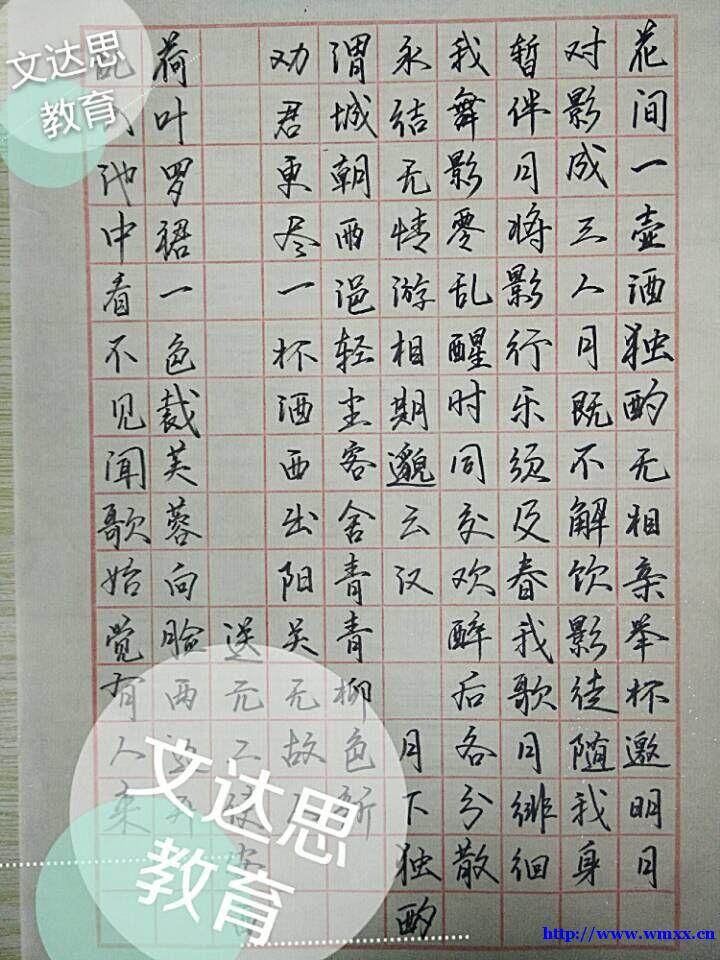 花间一壶酒独酌无相亲举杯邀明月
对影成三人月既不解饮影徒随我身
暂伴月将影行乐须及春我歌月徘徊
我舞影零乱醒时同交欢醉后各分散
永结无情游相期邈云汉 月下独酌
渭城朝雨浥轻尘客舍青青柳色新
劝君更尽一杯酒西出阳关无故人
送元二使安西
荷叶罗裙一色裁芙蓉向脸两边开
乱入池中看不见闻歌始觉有人来
文达思
教育
文达思
教育
http://www.wmxx.cn